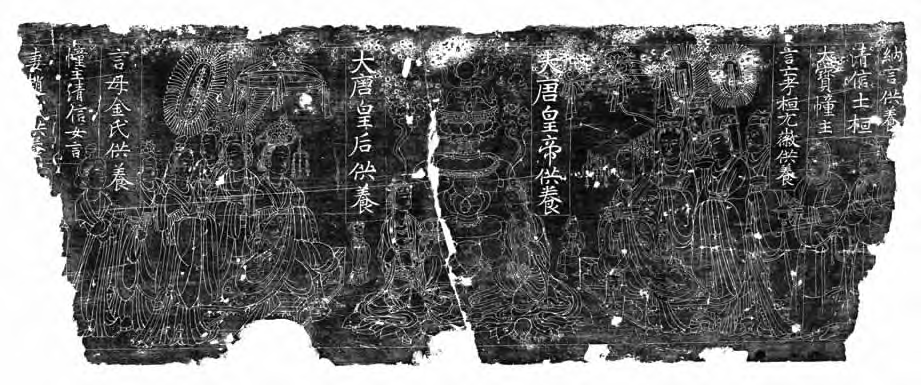 大寶幢主
清信士桓
納言供養
言考桓元徽供養
大唐皇帝供養
大唐皇后供養
言母金氏供養
幢主清信女言
妻趙供養